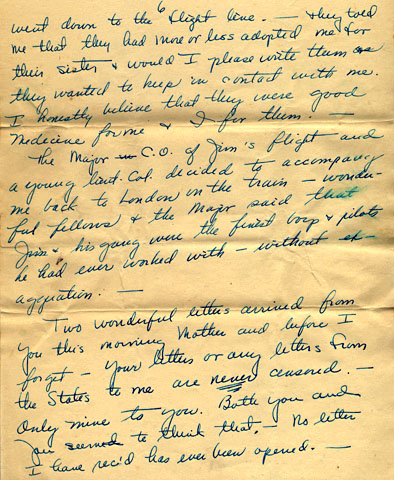 6
went down to the flight line. — they told
me that they had more or less adopted me for
their sister & would I please write them as
they wanted to keep in contact with me.
I honestly believe that they were good
medicine for me & I for them. —
The Major C.O. of Jim's flight and
a young lieut. Col. decided to accompany
me back to London on the train — wonder-
ful fellows & the Major said that
Jim & his gang were the finest boys & pilots
he had ever worked with — without ex-
aggeration. —
Two wonderful letters arrived from
you this morning Mother and before I
forget — your letters or any letters from
the States to me are never censored. —
Only mine to you. Both you and
seemed to think that. — No letter
I have rec'd has ever been opened. —